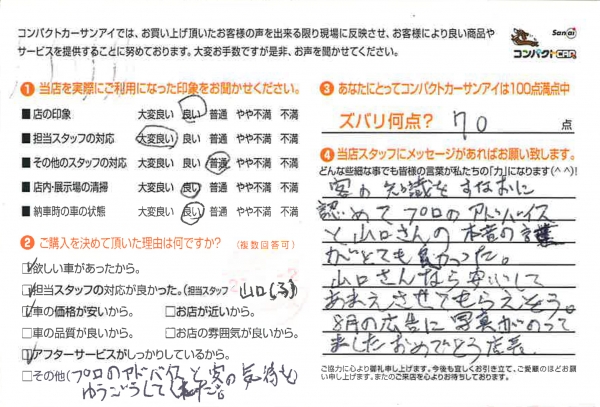 コンパクトカーサンアイでは、お買い上げ頂いたお客様の声を出来る限り現場に反映させ、お客様により良い商品や
サービスを提供することに努めております。大変お手数ですが是非、お声を聞かせてください。
SanAi
コンパクトCAR
❶当店を実際にご利用になった印象をお聞かせください。
■店の印象 大変良い 良い 普通 やや不満 不満
■担当スタッフの対応 大変良い 良い 普通 やや不満 不満
■その他のスタッフの対応 大変良い 良い 普通 やや不満 不満
■店内・展示場の清掃 大変良い 良い 普通 やや不満 不満
■納車時の車の状態 大変良い 良い 普通 やや不満 不満
❷ご購入を決めて頂いた理由は何ですか?(複数回答可)
欲しい車があったから。
担当スタッフの対応が良かった。(担当スタッフ 山口
車の価格が安いから。 □お店が近いから。
□車の品質が良いから。 □お店の雰囲気が良いから。
アフターサービスがしっかりしているから。
□その他(プロのアドバイスと客の気持も
❸あなたにとってコンパクトカーサンアイは100点満点中
ズバリ何点? 70 点
❹当店スタッフにメッセージがあればお願い致します。
どんな些細な事でも皆様の言葉が私たちの「力」になります(^^)!
客の知識をすなおに
認めてプロのアドバイス
と山口さんの本音の言葉
がとても良かった。
山口さんなら安心して
あまえさせてもらえそう。
8月の広告に写真がのって
ましたおめでとう店長。
ご協力に心より御礼申し上げます。今後も宜しくお引き立て、ご愛顧のほどお願い申し上げます。またのご来店を心よりお待ちしております。